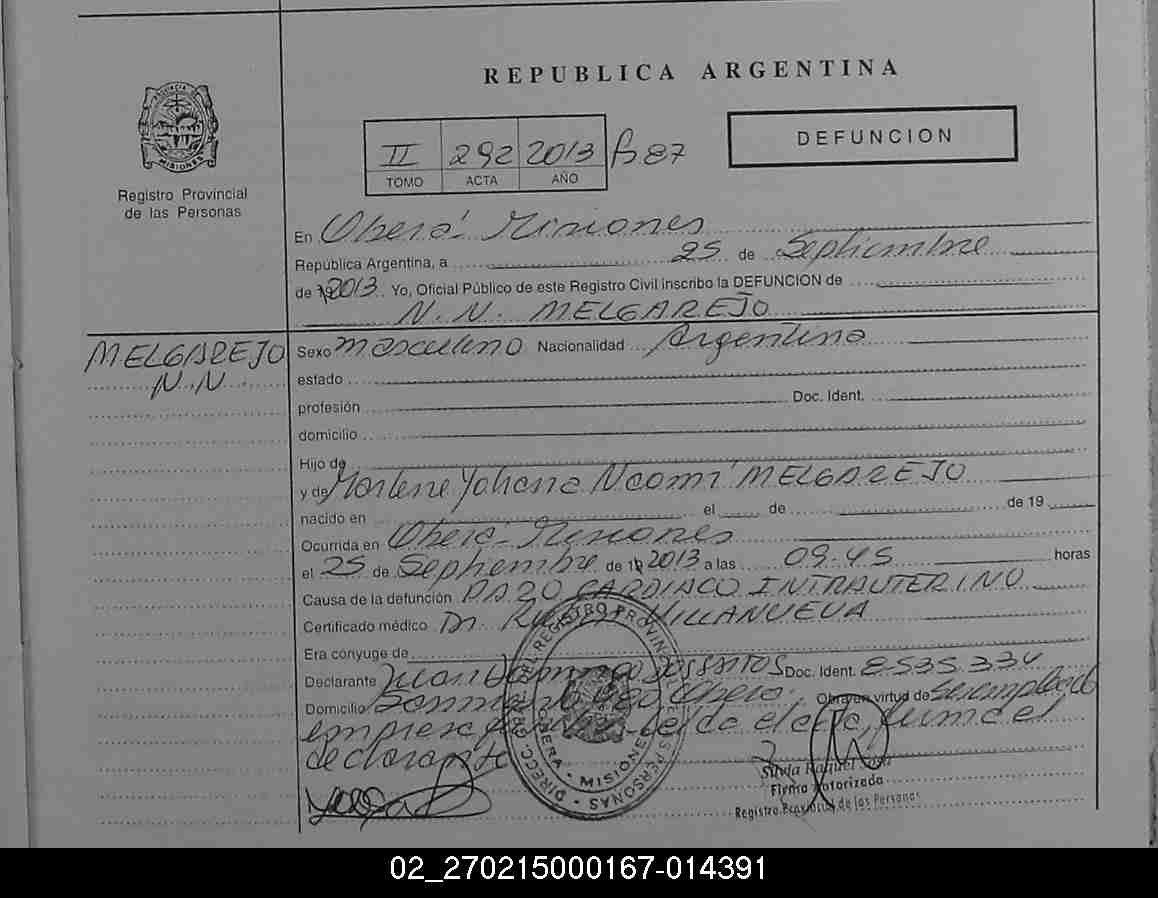 REPUBLICA ARGENTINA
PROVINCIA DE MISIONES
Registro Provincial
de las Personas
II 292 2013 B 87
TOMO ACTA AÑO
DEFUNCION
En Oberá Misiones
República Argentina, a 25 de Septiembre
de 2013 Yo, Oficial Público de este Registro Civil inscribo la DEFUNCION de
N. N. MELGAREJO
MELGAREJO
N. N.
Sexo masculino Nacionalidad Argentina
estado
profesión Doc. Ident.
domicilio
Hijo de
y de Marlene Yohana Naomi MELGAREJO
nacido en el de de 19
Ocurrida en Oberá Misiones
el 25 de Septiembre de 19 2013 a las 09.45 horas
Causa de la defunción PARO CARDIACO INTRAUTERINO
Certificado médico Dr. VILLANUEVA
Era cónyuge de
Declarante Juan Domingo DOSSANTOS Doc. Ident. 8.535.334
Domicilio Oberá. Obra en virtud de ser empleado
empresa Leída el acta, firma el
declarante
DIRECC. GRAL. DE REGISTRO PROVINCIAL PERSONAS
OBERA - MISIONES
Silvia Raquel
Firma Autorizada
Registro Provincial de las Personas
02_270215000167-014391